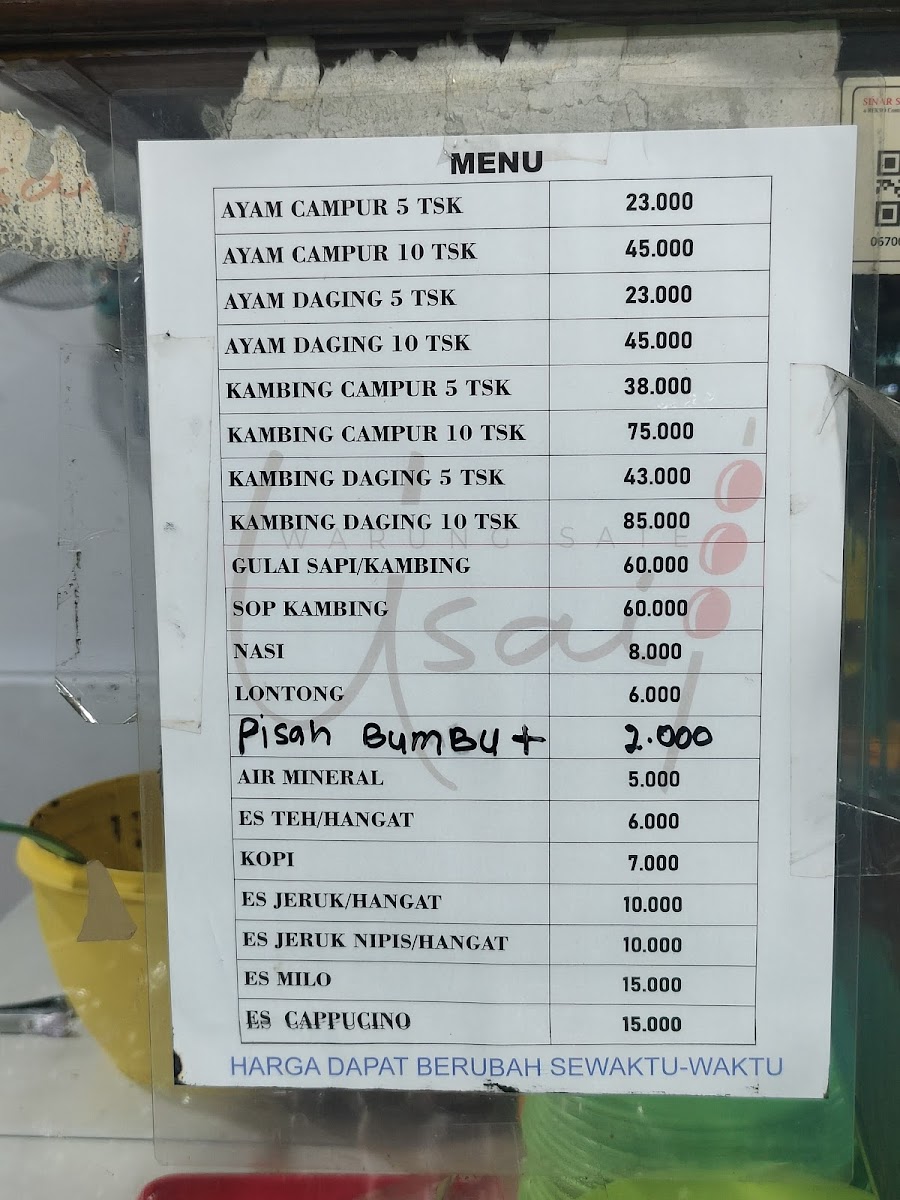 MENU
AYAM CAMPUR 5 TSK 23.000
AYAM CAMPUR 10 TSK 45.000
AYAM DAGING 5 TSK 23.000
AYAM DAGING 10 TSK 45.000
KAMBING CAMPUR 5 TSK 38.000
KAMBING CAMPUR 10 TSK 75.000
KAMBING DAGING 5 TSK 43.000
KAMBING DAGING 10 TSK 85.000
WARUNG SATE
Usai
GULAI SAPI/KAMBING 60.000
SOP KAMBING 60.000
NASI 8.000
LONTONG 6.000
Pisah BumBu + 2.000
AIR MINERAL 5.000
ES TEH/HANGAT 6.000
KOPI 7.000
ES JERUK/HANGAT 10.000
ES JERUK NIPIS/HANGAT 10.000
ES MILO 15.000
ES CAPPUCINO 15.000
HARGA DAPAT BERUBAH SEWAKTU-WAKTU